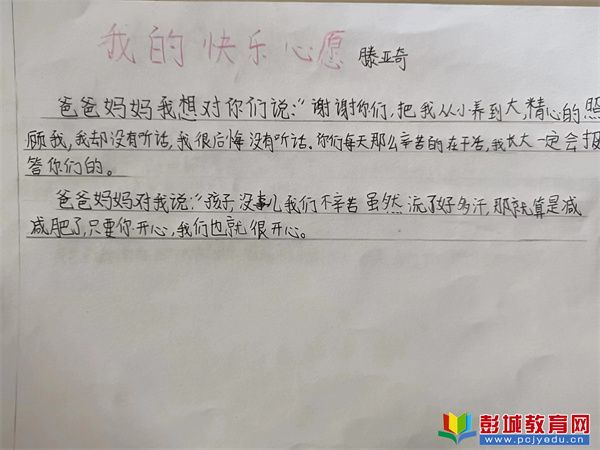 我的快乐心愿 滕亚奇
爸爸妈妈我想对你们说:“谢谢你们,把我从小养到大,精心的照
顾我,我却没有听话,我很后悔没有听话。你们每天那么辛苦的在干活,我长大一定会报
答你们的。
爸爸妈妈对我说:“孩子,没事儿我们不辛苦虽然流了好多汗,那就算是减
减肥了,只要你开心,我们也就很开心。
彭城教育网
www.pcjyedu.cn